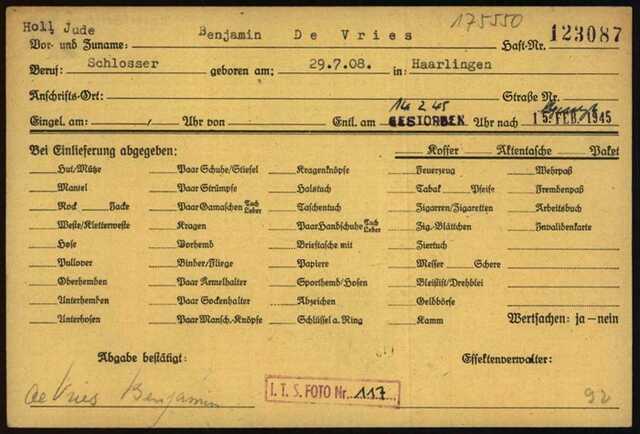 Holl, Jude 175550
Vor- und Zuname: Benjamin De Vries Haft-Nr. 123087
Beruf: Schlosser geboren am: 29.7.08. in: Haarlingen
Anschrifts-Ort: Straße Nr.
Eingel. am: Uhr von Entl. am 14 2 45 GESTORBEN Uhr nach 15. FEB. 1945
Bei Einlieferung abgegeben: Koffer Aktentasche Paket
Hut/Mütze Paar Schuhe/Stiefel Kragenknöpfe Feuerzeug Wehrpaß
Mantel Paar Strümpfe Halstuch Tabak Pfeife Fremdenpaß
Rock Jacke Paar Gamaschen Tuch Leder Taschentuch Zigarren/Zigaretten Arbeitsbuch
Weste/Kletterweste Kragen Paar Handschuhe Tuch Leder Zig.-Blättchen Invalidenkarte
Hose Vorhemd Brieftasche mit Ziertuch
Pullover Binder/Fliege Papiere Messer Schere
Oberhemden Paar Ärmelhalter Sporthemd/Hosen Bleistift/Drehblei
Unterhemden Paar Sockenhalter Abzeichen Geldbörse
Unterhosen Paar Mansch.-Knöpfe Schlüssel a. Ring Kamm Wertsachen: ja—nein
Abgabe bestätigt: Effektenverwalter:
de Vries Benjamin I. T. S. FOTO Nr. 117 92